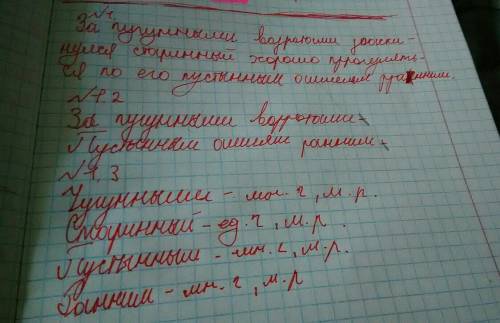 №1
За чугунными воротами раски-
нулся старинный хорошо прогулять-
ся по его пустынным аллеям ранним.
№1.2
За чугунными воротами
Пустынным аллеям ранним
№1.3
Чугунными - мн.ч, м.р.
Старинный - ед.ч, м.р.
Пустынным - мн.ч, м.р.
Ранним - мн.ч, м.р